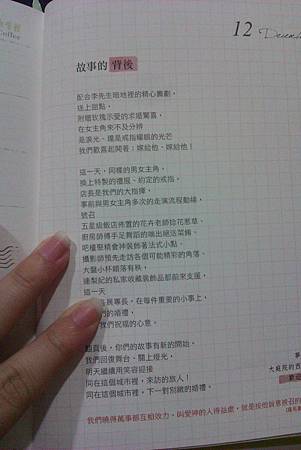 Coffee
12
故事的 背後
配合李先生暗地裡的精心籌劃，
送上甜點，
附贈玫瑰示愛的求婚驚喜，
在女主角來不及分辨
是淚光、還是戒指耀眼的光芒
我們歡喜起鬨著：嫁給他、嫁給他！
這一天，同樣的男女主角，
換上特製的禮服、約定的戒指，
店長是我們的大指揮，
事前與男女主角多次的走演流程動線，
號召
五星級飯店佈置的花卉老師捻花惹草，
廚房師傅手足舞蹈的端出絕活菜餚、
吧檯聚精會神裝飾著法式小點、
攝影師預先走訪各個可能精彩的角落、
大盤小杯錯落有秩，
連梨紀的私家收藏裝飾品都前來支援，
這一天
各展專長，在每件重要的小事上，
們的婚禮，
我們祝福的心意。
後，你們的故事有新的開始，
我們回復舞台、關上燈光，
明天繼續用笑容迎接
同在這個城市裡，來訪的旅人！
同在這個城市裡，下一對別緻的婚禮。
我們曉得萬事都互相效力，叫愛神的人得益處，就是按他旨意被召的